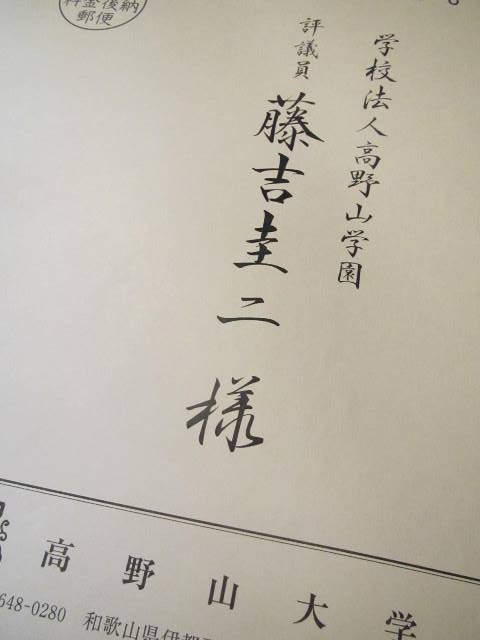 料金後納
郵便
学校法人高野山学園
評議員
藤吉圭二様
高野山大学
648-0280 和歌山県伊都